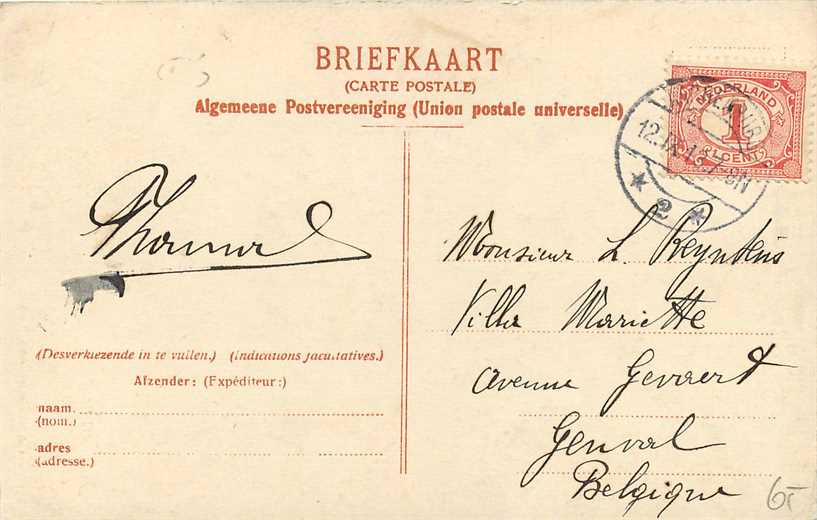 BRIEFKAART
(CARTE POSTALE)
Algemeene Postvereeniging (Union postale universelle)
NEDERLAND
1
CENT
2
Thomas
Monsieur L. Reyntens
Villa Mariette
Avenue Gevaert
Genval
Belgique
(Desverkiezende in te vullen.) (Indications facultatives.)
Afzender: (Expéditeur:)
naam
(nom.)
adres
(adresse.)
6-